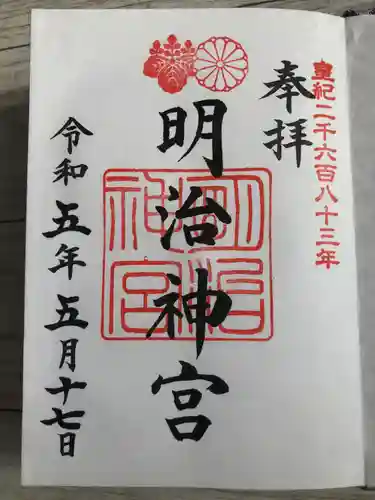 皇紀二千六百八十三年
奉拝
明治神宮
明治神宮
令和五年五月十七日